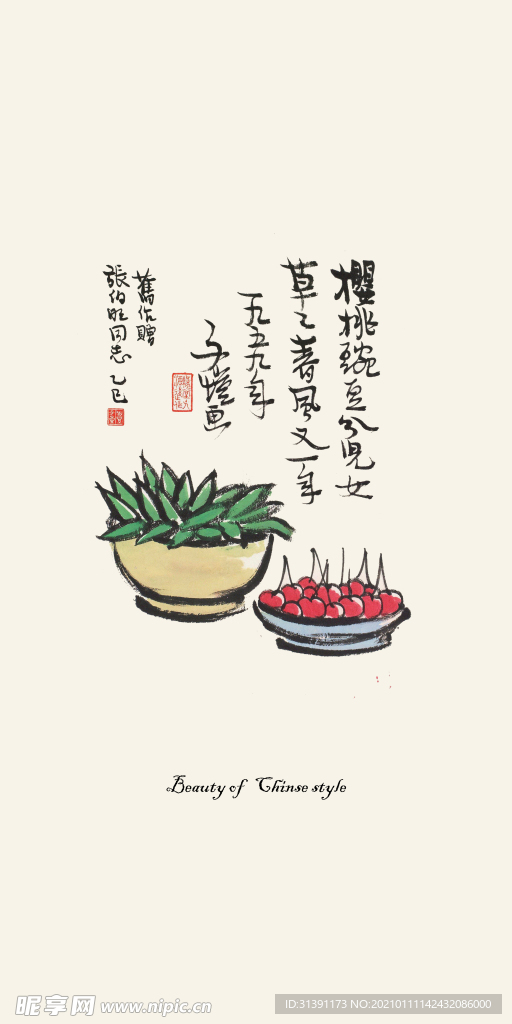 櫻桃豌豆分兒女
草々春風又一年
一九五九年
子愷画
舊作贈
張伯旺同志 乙巳
Beauty of Chinse style
昵享网 www.nipic.cn
ID:31391173 NO:20210111142432086000